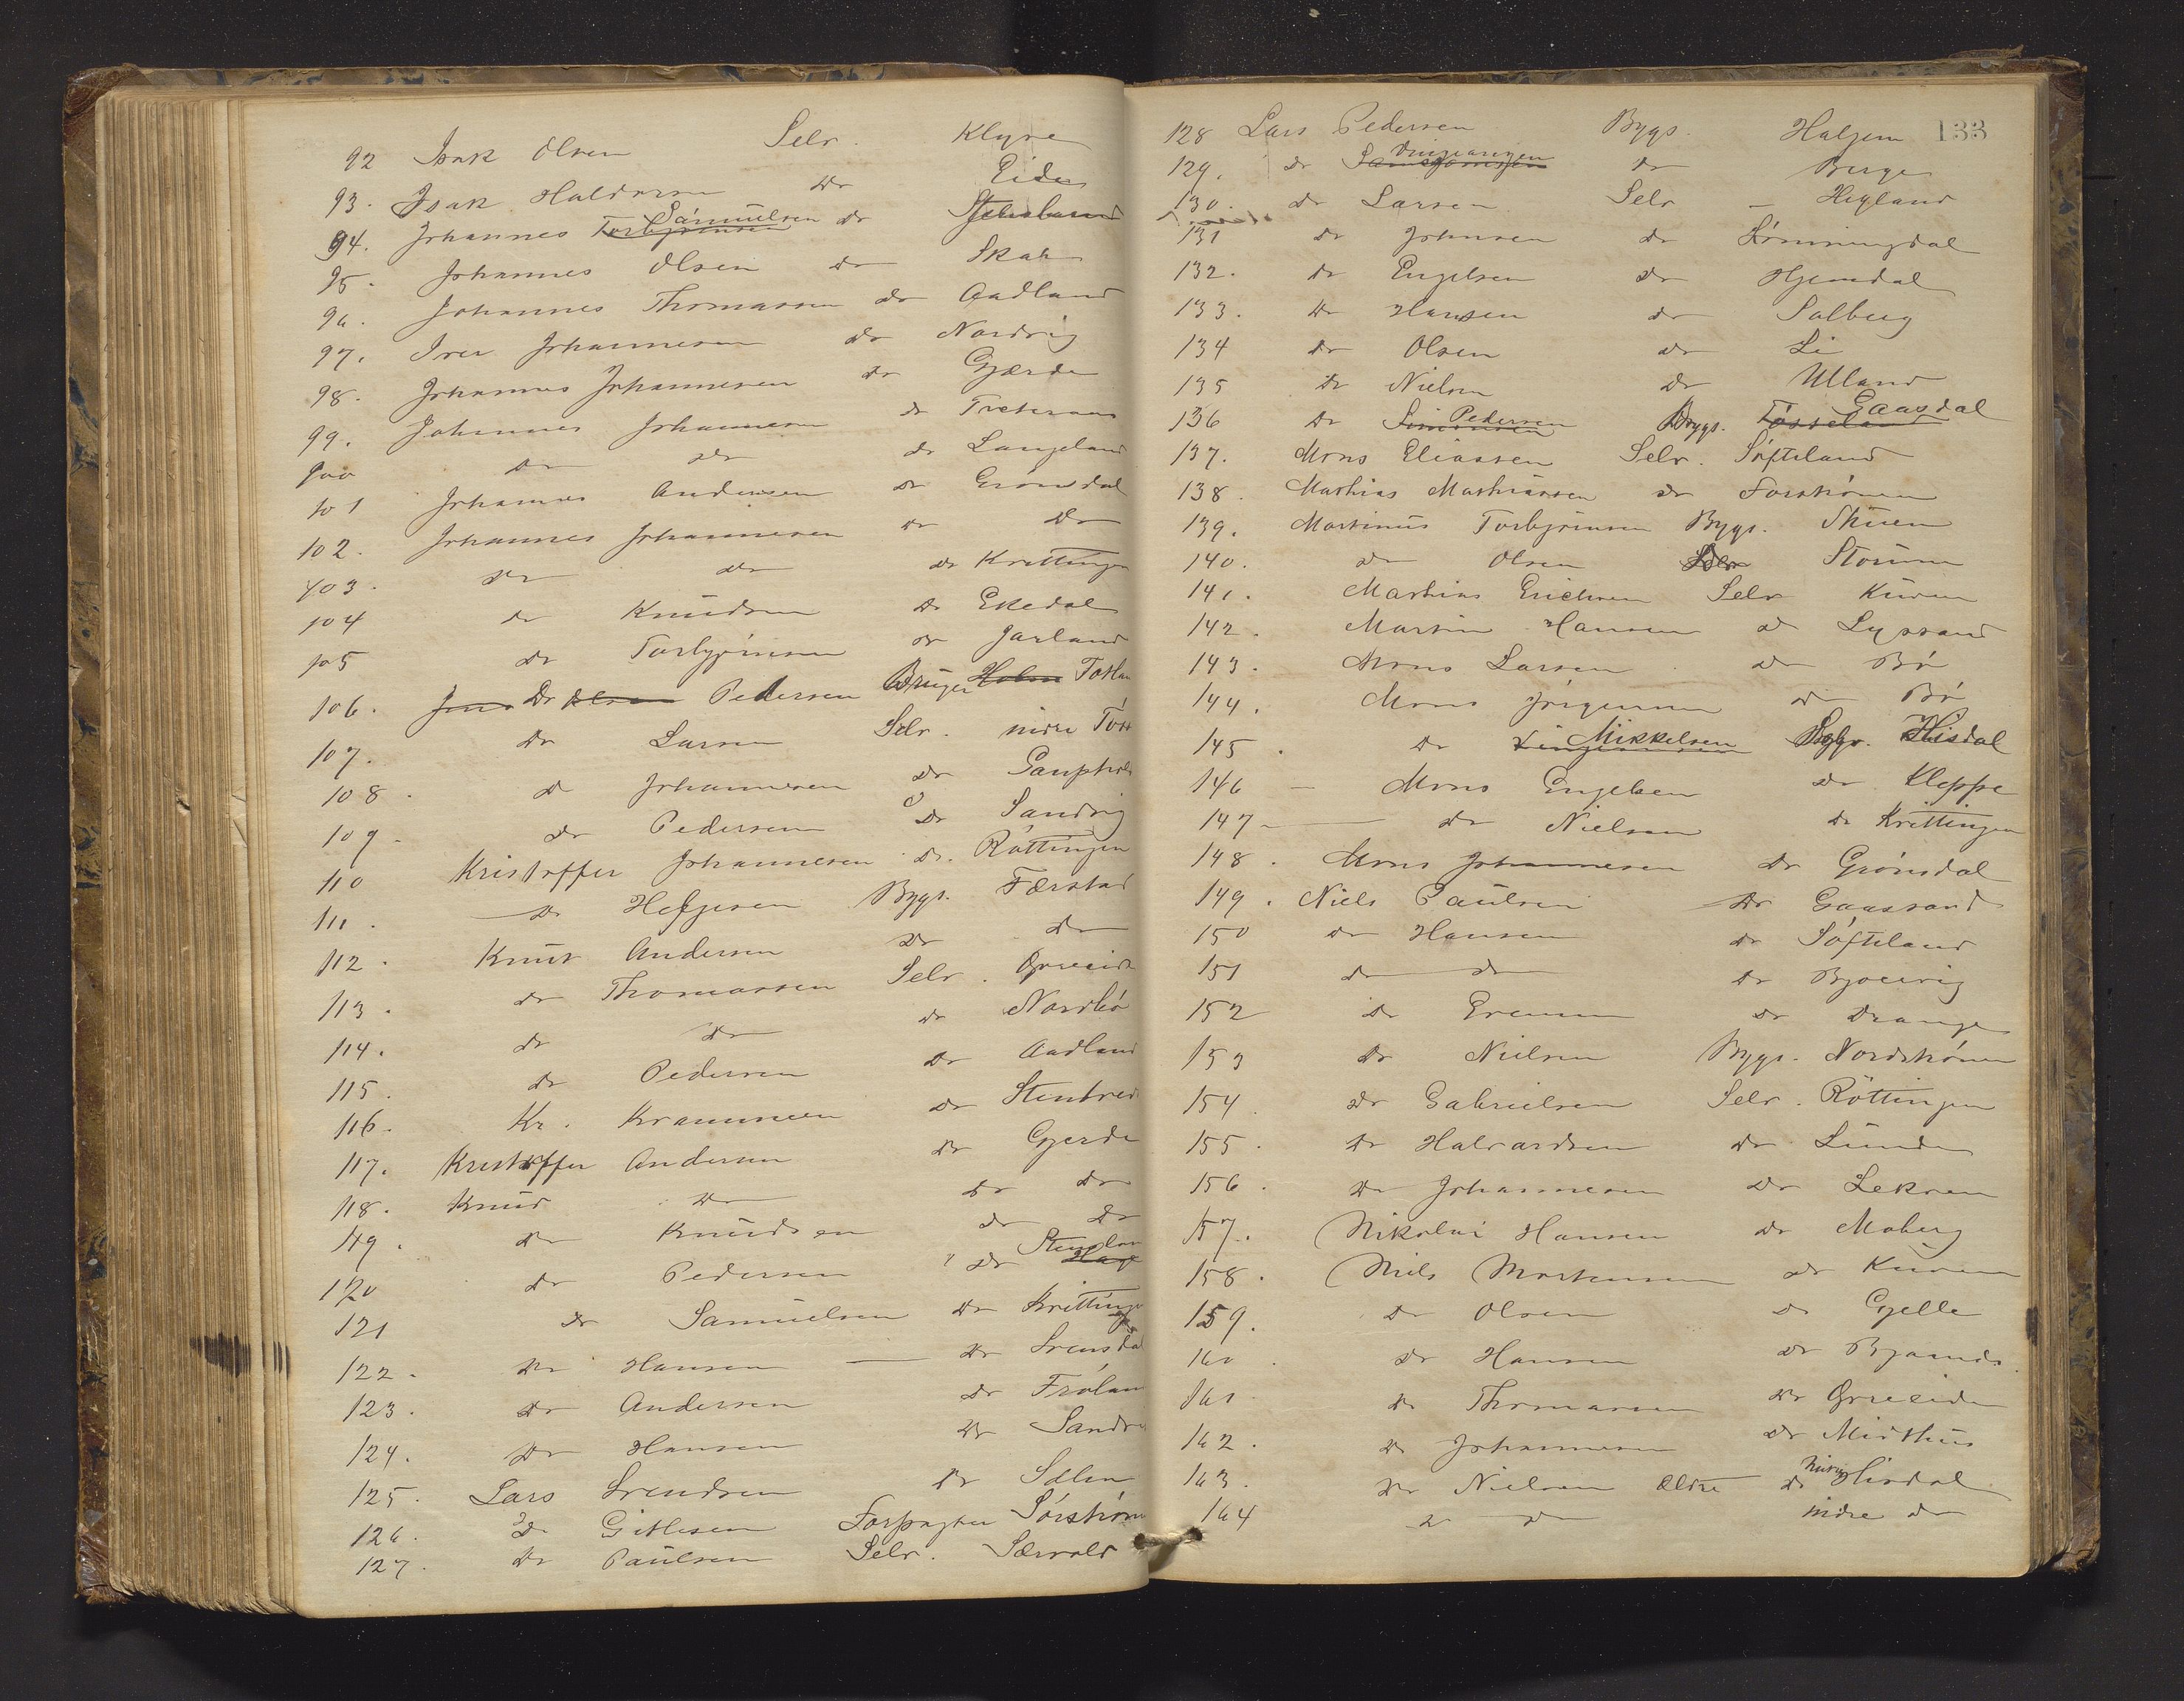 92 Isak Olsen Selv. Klyve
93. Isak Haldorsen Do Eide
94. Johannes Torbjörnsen Samuelsen do
95. Johannes Olsen do Skaten
96. Johannes Thomassen do Aadland
97. Iver Johannesen do Nordvig
98. Johannes Johannesen do Gjærde
99. Johannes Johannesen do Tveteraas
100 do do do Langeland
101 Johannes Andersen do Grönsdal
102. Johannes Johannesen do Do
103. do do do Kvittingen
104 do Knudsen do Ekedal
105 do Torbjörnsen do Jarland
106. Jens Do Olsen Pedersen Bruger Holm
107. do Larsen Selv. nedre
108. do Johannesen do
109. do Pedersen do Sandvig
110 Kristoffer Johannesen do. Röttingen
111. do Helgesen Bygs. Færstad
112. Knut Andersen do do
113. do Thomassen Selv. Øvreeide
114. do do do Nordbö
115. do Pedersen do Aadland
116. Kr. do
117. Kristoffer Andersen do Gjerde
118. Knud do do do
119. do Knudsen do do
120 do Pedersen do Hauge
121 do Samuelsen do Kvittingen
122. do Hansen do
123. do Andersen do Fröland
124. do Hansen do Sandvi
125. Lars Svendsen do
126. do Gitlesen Forpagter Sörström
127. do Paulsen Selv. Særvold
133
128 Lars Pedersen Bygs. Haljem
129. do do Berge
130. do Larsen Selv Hegland
131 do Johnsen do Lönningdal
132. do Engelsen do Hjemdal
133. do Hansen do Solberg
134 do Olsen do Li
135 do Nielsen do Ulland
136 do Simonsen Pedersen Bygs. Tösseland Gaasdal
137. Mons Eliassen Selv. Söfteland
138. Mathias Mathiassen do Forströnen
139. Martinus Torbjörnsen Bygs. Skuen
140. do Olsen do Storum
141. Mathias Erichsen Selv Kuven
142. Martin Hansen do Lyssand
143. Mons Larsen do Bö
144. Mons Jörgensen do Bö
145. do Mikkelsen Selv. Hisdal
146 Mons Engelsen do Kleppe
147 do Nielsen do Kvittingen
148. Mons Johannesen do Grönsdal
149. Niels Paulsen do Gaassand
150 do Hansen do Söfteland
151 do do do Bjørnvig
152 do Evensen do Drange
153 do Nielsen Bygs. Nordströnen
154 do Gabrielsen Selv. Röttingen
155. do Halvardsen do Lunde
156. do Johannesen do Lekven
157. Nikolai Hansen do Moberg
158. Niels Mortensen do Kuven
159. do Olsen do Gjelle
160. do Hansen do Bjaanæs
161 do Thomassen do Øvreeide
162. do Johannesen do Midthus
163. do Nielsen Ældre do Hisdal
164 do do nedre do